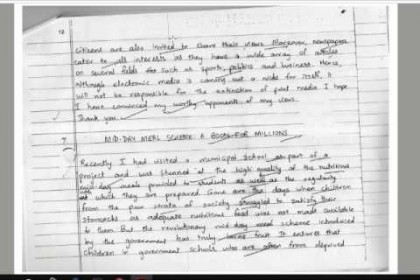 12
Citizens are also invited to share their views. Moreover, newspapers
cater to all interests as they have a wide array of articles
on several fields such as sports, politics and business. Hence,
Although electronic media is carving out a wide for itself, it
will not be responsible for the extinction of print media. I hope
I have convinced my worthy opponents of my views.
Thank you.
7
MID-DAY MEAL SCHEME A BOON FOR MILLIONS
Recently I had visited a municipal school as part of a
project and was stunned at the high quality of the nutritious
mid-day meals provided to students as well as the regularity
at which they are prepared. Gone are the days when children
from the poor strata of society struggled to satisfy their
stomachs as adequate nutritious food was not made available
to them. But the revolutionary mid-day meal scheme introduced
by the government has truly borne fruit. It ensures that
children in government schools who are often from deprived